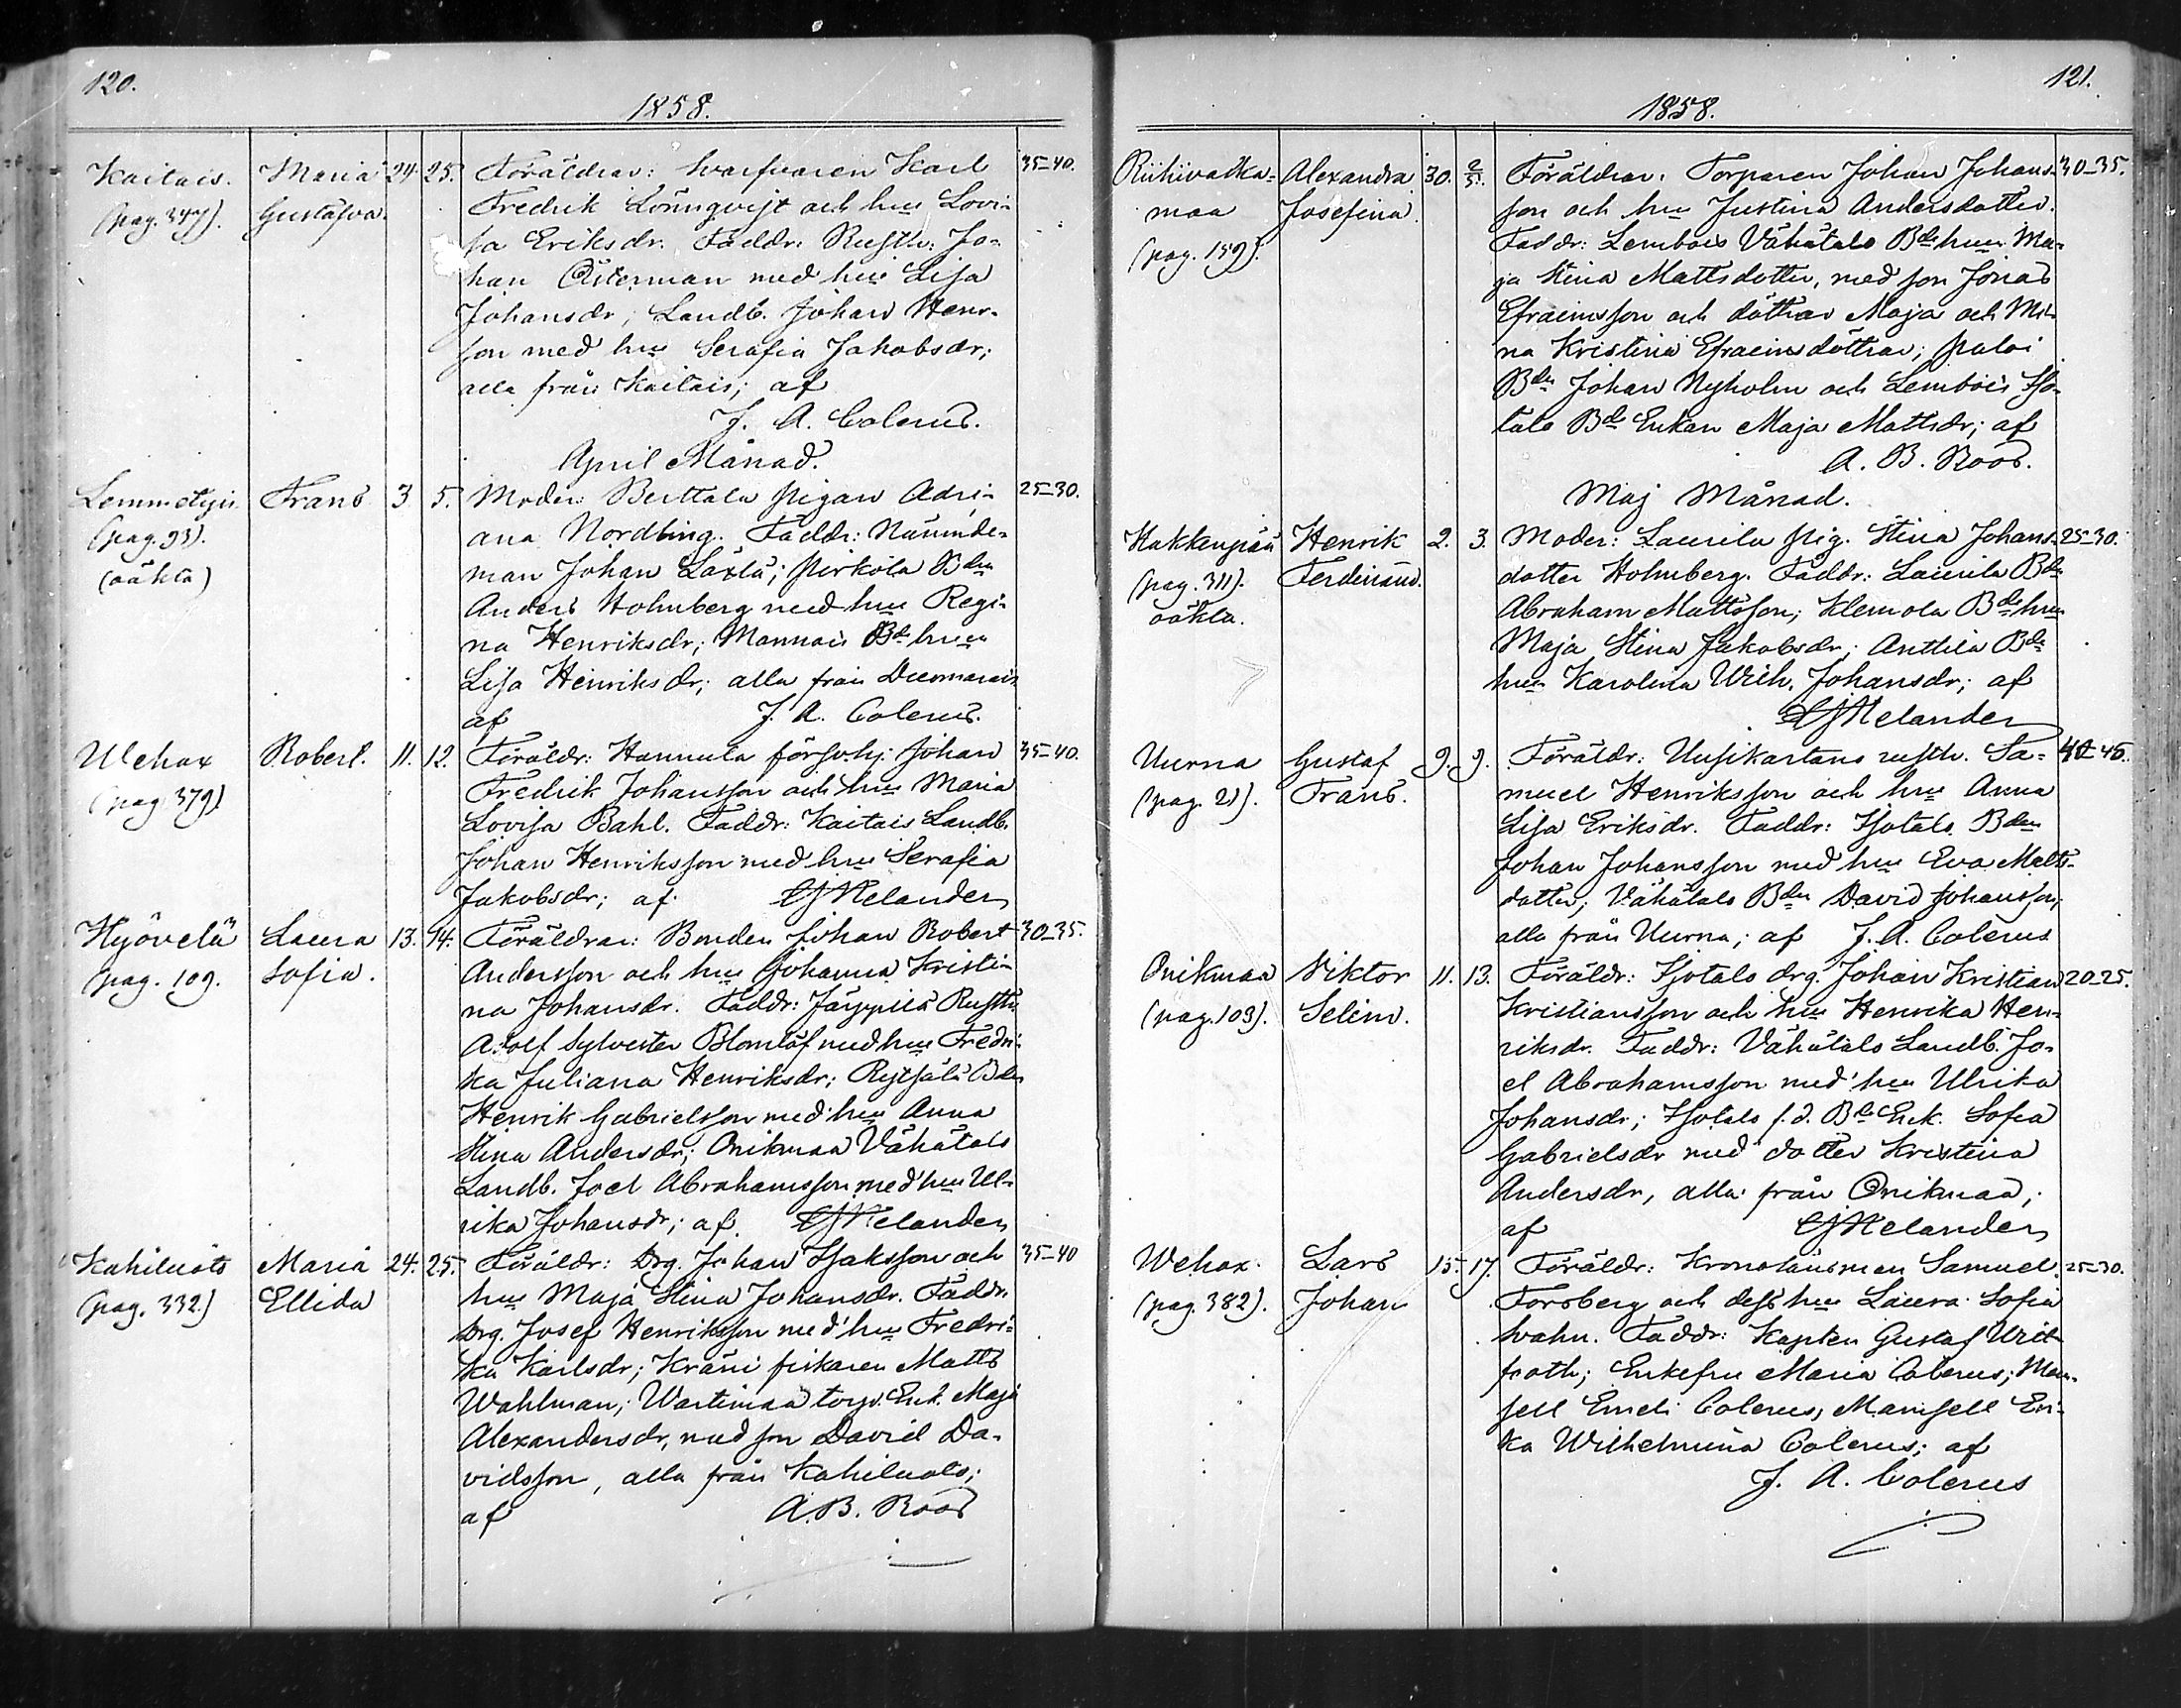 120.
1858.
Kaitais. Maria 24. 25. Föräldrar: Svarfvaren Karl 35-40.
(pag. 347). Gustafva. Fredrik Lönnqvist och hu Lovi-
sa Eriksdr. Faddr: Rusth: Jo-
han Österman med hu Lisa
Johansdr; Landb. Johan Henr.
son med hu Serafia Jakobsdr;
alla från Kaitais; af
J. A. Colerus.
April Månad.
Lemmetyis Frans 3 5. Moder: Berttala pigan Adri- 25-30.
(pag. 93). ana Nordling. Faddr: Nämnde-
(oäkta) man Johan Laxla; Pirkola Bdn
Anders Holmberg med hu Regi-
na Henriksdr; Mannois Bde hu
Lisa Henriksdr; alla från
af J. A. Colerus.
Wehax Robert. 11. 12. Föräldr: Hannula Johan 35-40.
(pag. 379) Fredrik Johansson och hu Maria
Lovisa Bahl. Faddr: Kaitais Landb.
Johan Henriksson med hu Serafia
Jakobsdr; af Helander
Hyövelä Laura 13. 14. Föräldrar: Bonden Johan Robert 30-35.
pag. 109. Sofia. Andersson och hu Johanna Kristi-
na Johansdr. Faddr: Järppilä Rusth.
Adolf Sylvester Blomlöf med hu Fredri-
ka Juliana Henriksdr; Bdn
Henrik Gabrielsson med hu Anna
Stina Andersdr; Onikmaa Vähätalo
Landb. Joel Abrahamsson med hu Ul-
rika Johansdr; af Helander
Kahiluoto Maria 24. 25. Föräldr: Drg. Johan Isaksson och 35-40
(pag. 332) Ellida hu Maja Stina Johansdr. Faddr.
Drg. Josef Henriksson med hu Fredri-
ka Karlsdr; fiskaren Matts
Wahlman; Wartimaa torp. Enk. Maja
Alexandersdr, med son David Da-
vidsson, alla från Kahiluoto;
af A. B. Roos
121.
1858.
Alexandra 30. 2/5. Föräldrar: Torparen Johan Johans- 30-35.
maa Josefina. son och hu Justina Andersdotter.
(pag. 159). Faddr: Lembois Vähätalo Bde hu Ma-
ja Stina Mattsdotter, med son Jonas
Efraimsson och döttrar Maja och Mi-
na Kristina Efraimsdöttrar; Paloi
Bdn Johan Nyholm och Lembois Iso-
talo Bde Enkan Maja Mattsdr; af
A. B. Roos.
Maj Månad.
Kukkenpää Henrik 2. 3. Moder: Laurila pig. Stina Johans- 25-30.
(pag. 311). Ferdinand. dotter Holmberg. Faddr: Laurila Bdn
oäkta. Abraham Mattsson; Klemola Bde hu
Maja Stina Jakobsdr; Anttila Bde
hu Karolina Wilh. Johansdr; af
Helander
Uurna Gustaf 9. 9. Föräldr: Uusikartano rusth. Sa- 40-45.
(pag. 21). Frans. muel Henriksson och hu Anna
Lisa Eriksdr. Faddr: Isotalo Bdn
Johan Johansson med hu Eva Matts-
dotter; Vähätalo Bdn David Johansson;
alla från Uurna; af J. A. Colerus
Onikmaa Viktor 11. 13. Föräldr: Isotalo drg. Johan Kristian 20-25.
(pag. 103). Selim. Kristiansson och hu Henrika Hen-
riksdr. Faddr: Vähätalo Landb. Jo-
el Abrahamsson med hu Ulrika
Johansdr; Isotalo f. d. Bde Enk. Sofia
Gabrielsdr med dotter Kristina
Andersdr, alla från Onikmaa;
af Helander
Wehax Lars 15. 17. Föräldr: Kronolänsman Samuel 25-30.
(pag. 382). Johan Forsberg och dess hu Laura Sofia
Svahn. Faddr: Kapten Gustaf
Enkefru Maria Colerus; Mam-
sell Emeli Colerus, Mamsell Eri-
ka Wilhelmina Colerus; af
J. A. Colerus